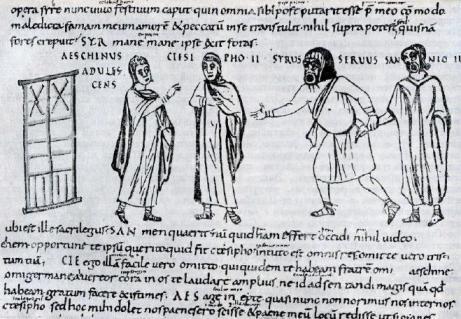 opera frre nunc uiuo festiuum caput quin omnia sibi post putarit esse p meo comodo
maledicta famam meum amorē & peccatū inse transtulit nihil supra potest quisnā
fores crepuit SYR mane mane ipse exit foras.
AESCHINUS CTESI PHO II SYRUS SERUUS SAN NIO II
ADULES
CENS
ubi est ille sacrilegus SAN men quaerit nū quid nam effert occidi nihil uideo
ehem oportune te ipsū quero quid fit ctesipho in tuto est omnis res omitte uero tristi
tiam tuā CTE ego illā facile uero omitto qui quidem te habeam fratrem o mi aeschine
omi germane a uereor coram in os te laudare amplius ne id adsentandi magis quā qđ
habeam gratum facere existimes AES age inepte quasi nunc non norimus nos internos
ctesipho sed hoc mihi dolet nos paene sero scisse & paene in eū locū redisse ut si omnes